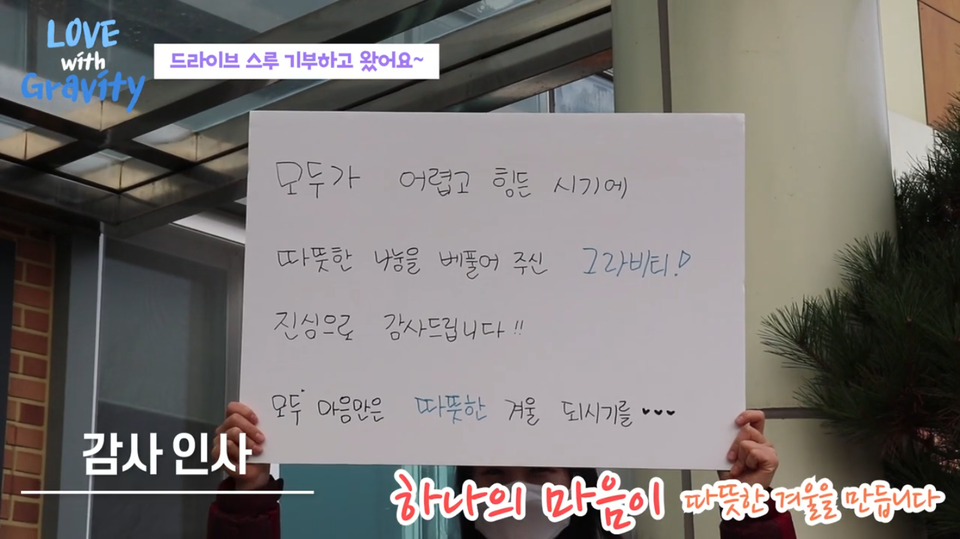 LOVE
with
Gravity
드라이브 스루 기부하고 왔어요~
모두가 어렵고 힘든 시기에
따뜻한 나눔을 베풀어 주신 그라비티!
진심으로 감사드립니다!!
모두 마음만은 따뜻한 겨울 되시기를
감사 인사
하나의 마음이 따뜻한 겨울을 만듭니다